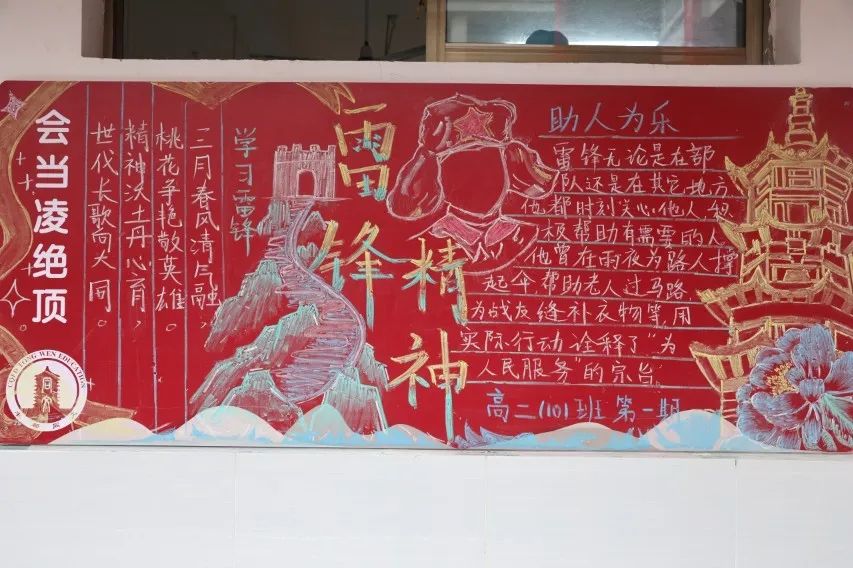 会当凌绝顶
WEN EDUCATION
学习雷锋
三月春风清气融，
桃花争艳敬英雄。
精神沃土丹心育，
世代长歌向大同。
雷锋精神
助人为乐
雷锋无论是在部
队还是在其它地方
他都时刻关心他人,积
极帮助有需要的人
他曾在雨夜为路人撑
起伞帮助老人过马路
为战友缝补衣物等,用
实际行动诠释了“为
人民服务”的宗旨。
高二(10)班 第一期